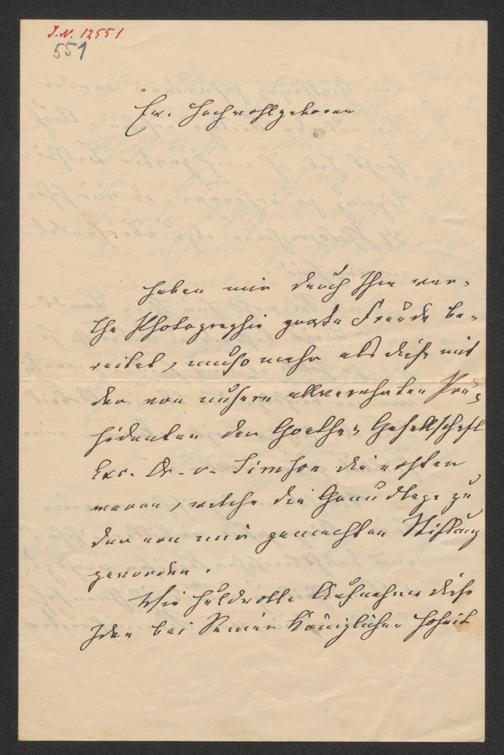 J.N. 12551
551
Ew. Hochwohlgeboren
haben mir durch Ihre wer-
the Photographie große Freude be-
reitet, umso mehr als diese mit
der von unserm allverehrten Prä-
sidenten der Goethe-Gesellschaft
Exc. Dr. v. Simson die ersten
waren, welche die Grundlage zu
der von mir gemachten Stiftung
geworden.
Die huldvolle Aufnahme dieser
Idee bei Seiner Königlichen Hoheit